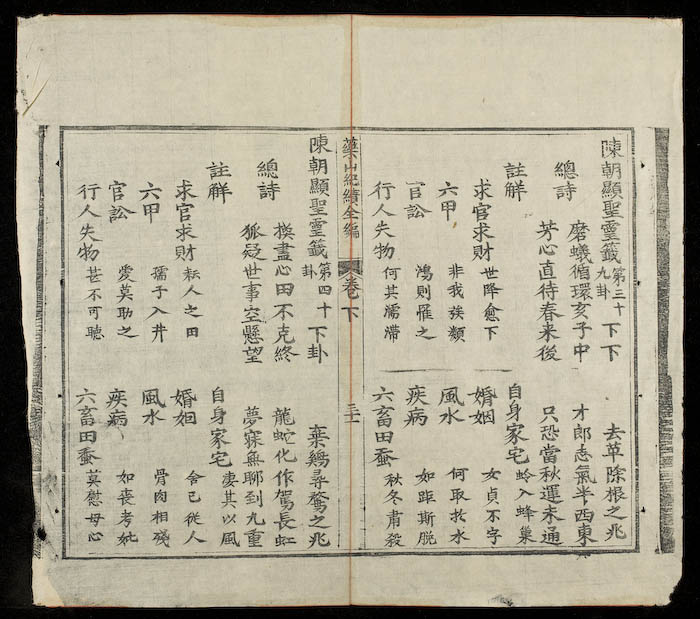 陳朝顯聖靈籤 第三十九卦 下下 去草除根之兆
總詩 磨蟻循環亥子中 才郎志氣半西東
芳心直待春来後 只恐當秋運未通
註觧 自身家宅 蛉入蜂巢
求官求財 世降愈下 婚姻 女貞不字
六甲 非我族類 風水 何取扵水
官訟 鴻則罹之 疾病 如距斯脱
行人失物 何其濡滯 六畜田蚕 秋冬肅殺
藥山紀績全編 卷下
陳朝顯聖靈籤 第四十卦 下卦 棄鷄尋鶩之兆
總詩 揆盡心田不克終 龍蛇化作駕長虹
狐疑世事空懸望 夢寐無聊到九重
註觧 自身家宅 凄其以風
求官求財 耘人之田 婚姻 舍己從人
六甲 孺子入井 風水 骨肉相殘
官訟 愛莫助之 疾病 如喪考妣
行人失物 甚不可聴 六畜田蚕 莫慰母心